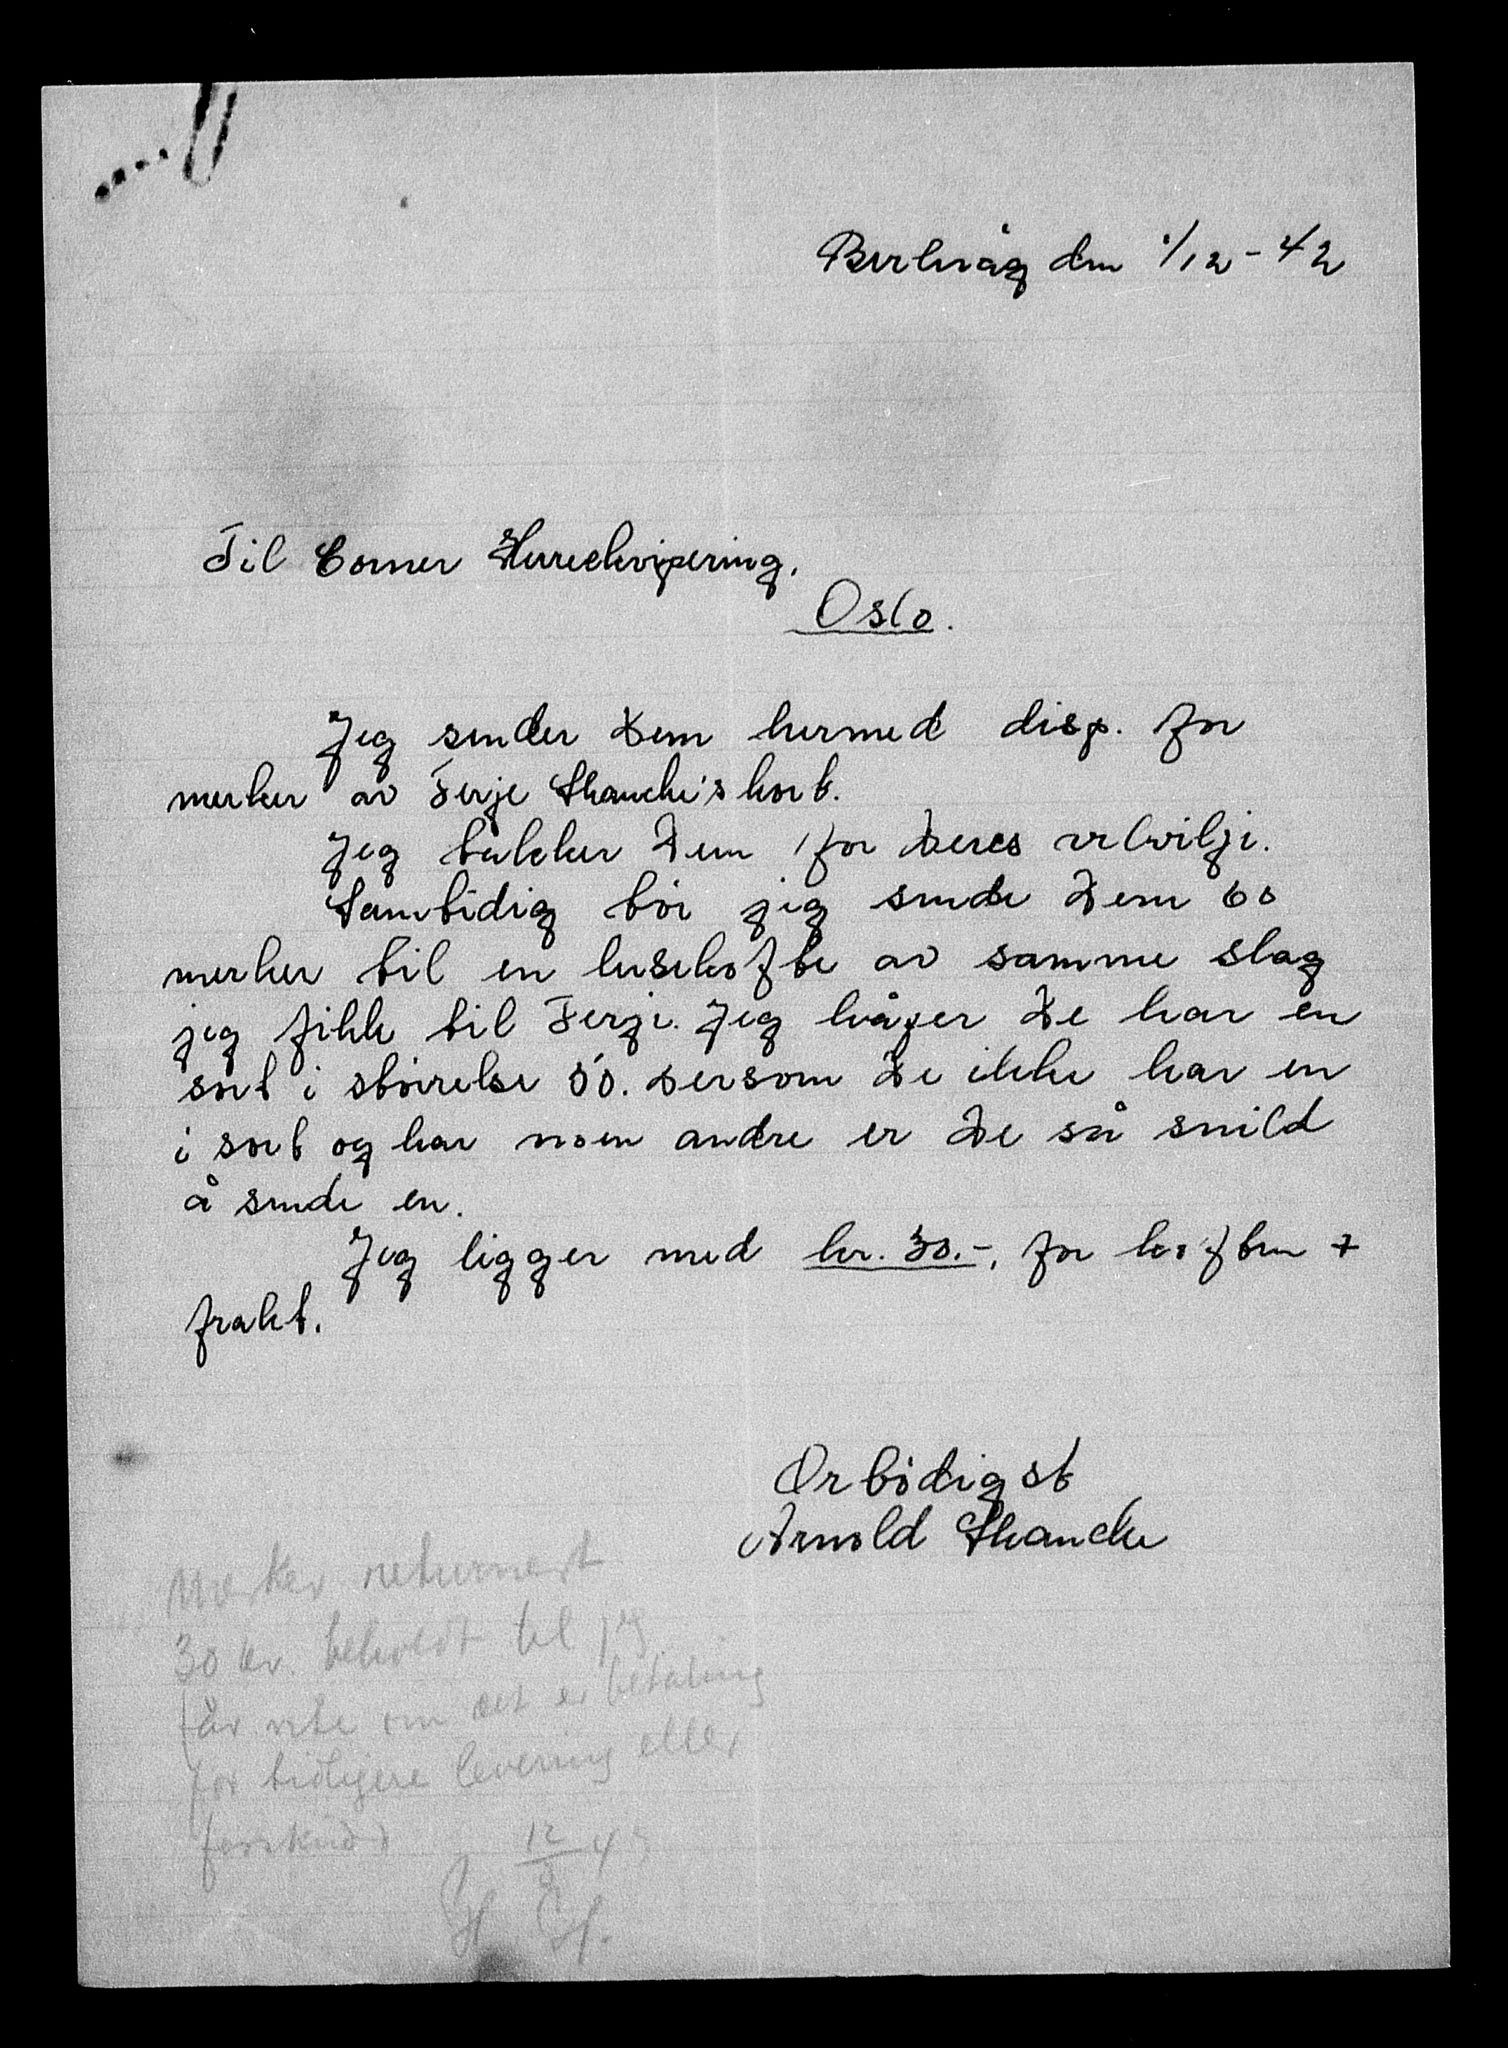 Berlevåg den 1/12-42
Til Corner Herrekvipering.
Oslo.
Jeg sender Dem hermed disp. for
merker av Terje Skancke's kort.
Jeg takker Dem for Deres velvilje.
Samtidig tør jeg sende Dem 60
merker til en lusekofte av samme slag
jeg fikk til Terje. Jeg håper De har en
sort i størelse 50. Dersom De ikke har en
i sort og har noen andre er De så snild
å sende en.
Jeg ligger med kr. 30.-, for koften +
frakt.
Ørbødigst
Arnold Skancke
Merker returnert
30 kr. beholdt til jeg
får vite om det er betaling
for tidligere levering eller
forskudd